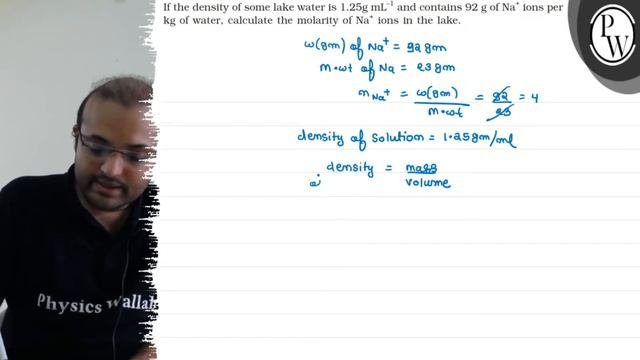 If the density of some lake water is 1.25g mL⁻¹ and contains 92 g of Na⁺ ions per
kg of water, calculate the molarity of Na⁺ ions in the lake.
PW
w(gm) of Na⁺ = 92 gm
m.wt of Na = 23 gm
n Na⁺ = w(gm)/m.wt = 92/23 = 4
density of solution = 1.25 gm/ml
density = mass/volume
Physics Wallah